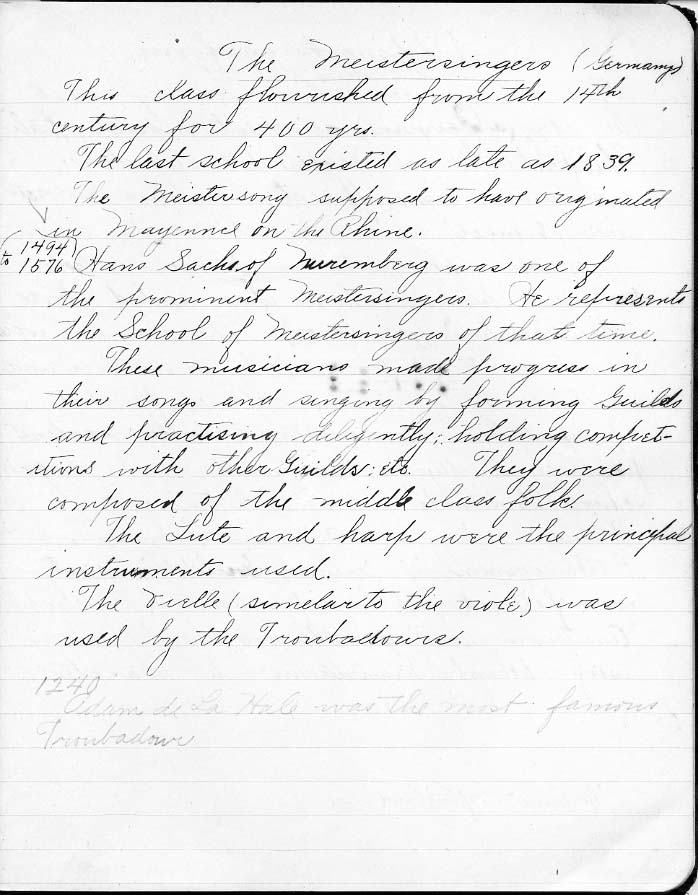 The Meistersingers (Germany)
This class flourished from the 14th
century for 400 yrs.
The last school existed as late as 1839.
The Meistersong supposed to have originated
in Mayennce on the Rhine.
(1494)
to 1576 Hans Sachs of Nuremberg was one of
the prominent Meistersingers. He represents
the School of Meistersingers of that time.
These musicians made progress in
their songs and singing by forming Guilds
and practising diligently; holding compet-
itions with other Guilds; etc. They were
composed of the middle class folk.
The Lute and harp were the principal
instruments used.
The Vielle (simelar to the viole) was
used by the Troubadours.
1240
Adam de La Hale was the most famous
Troubadour